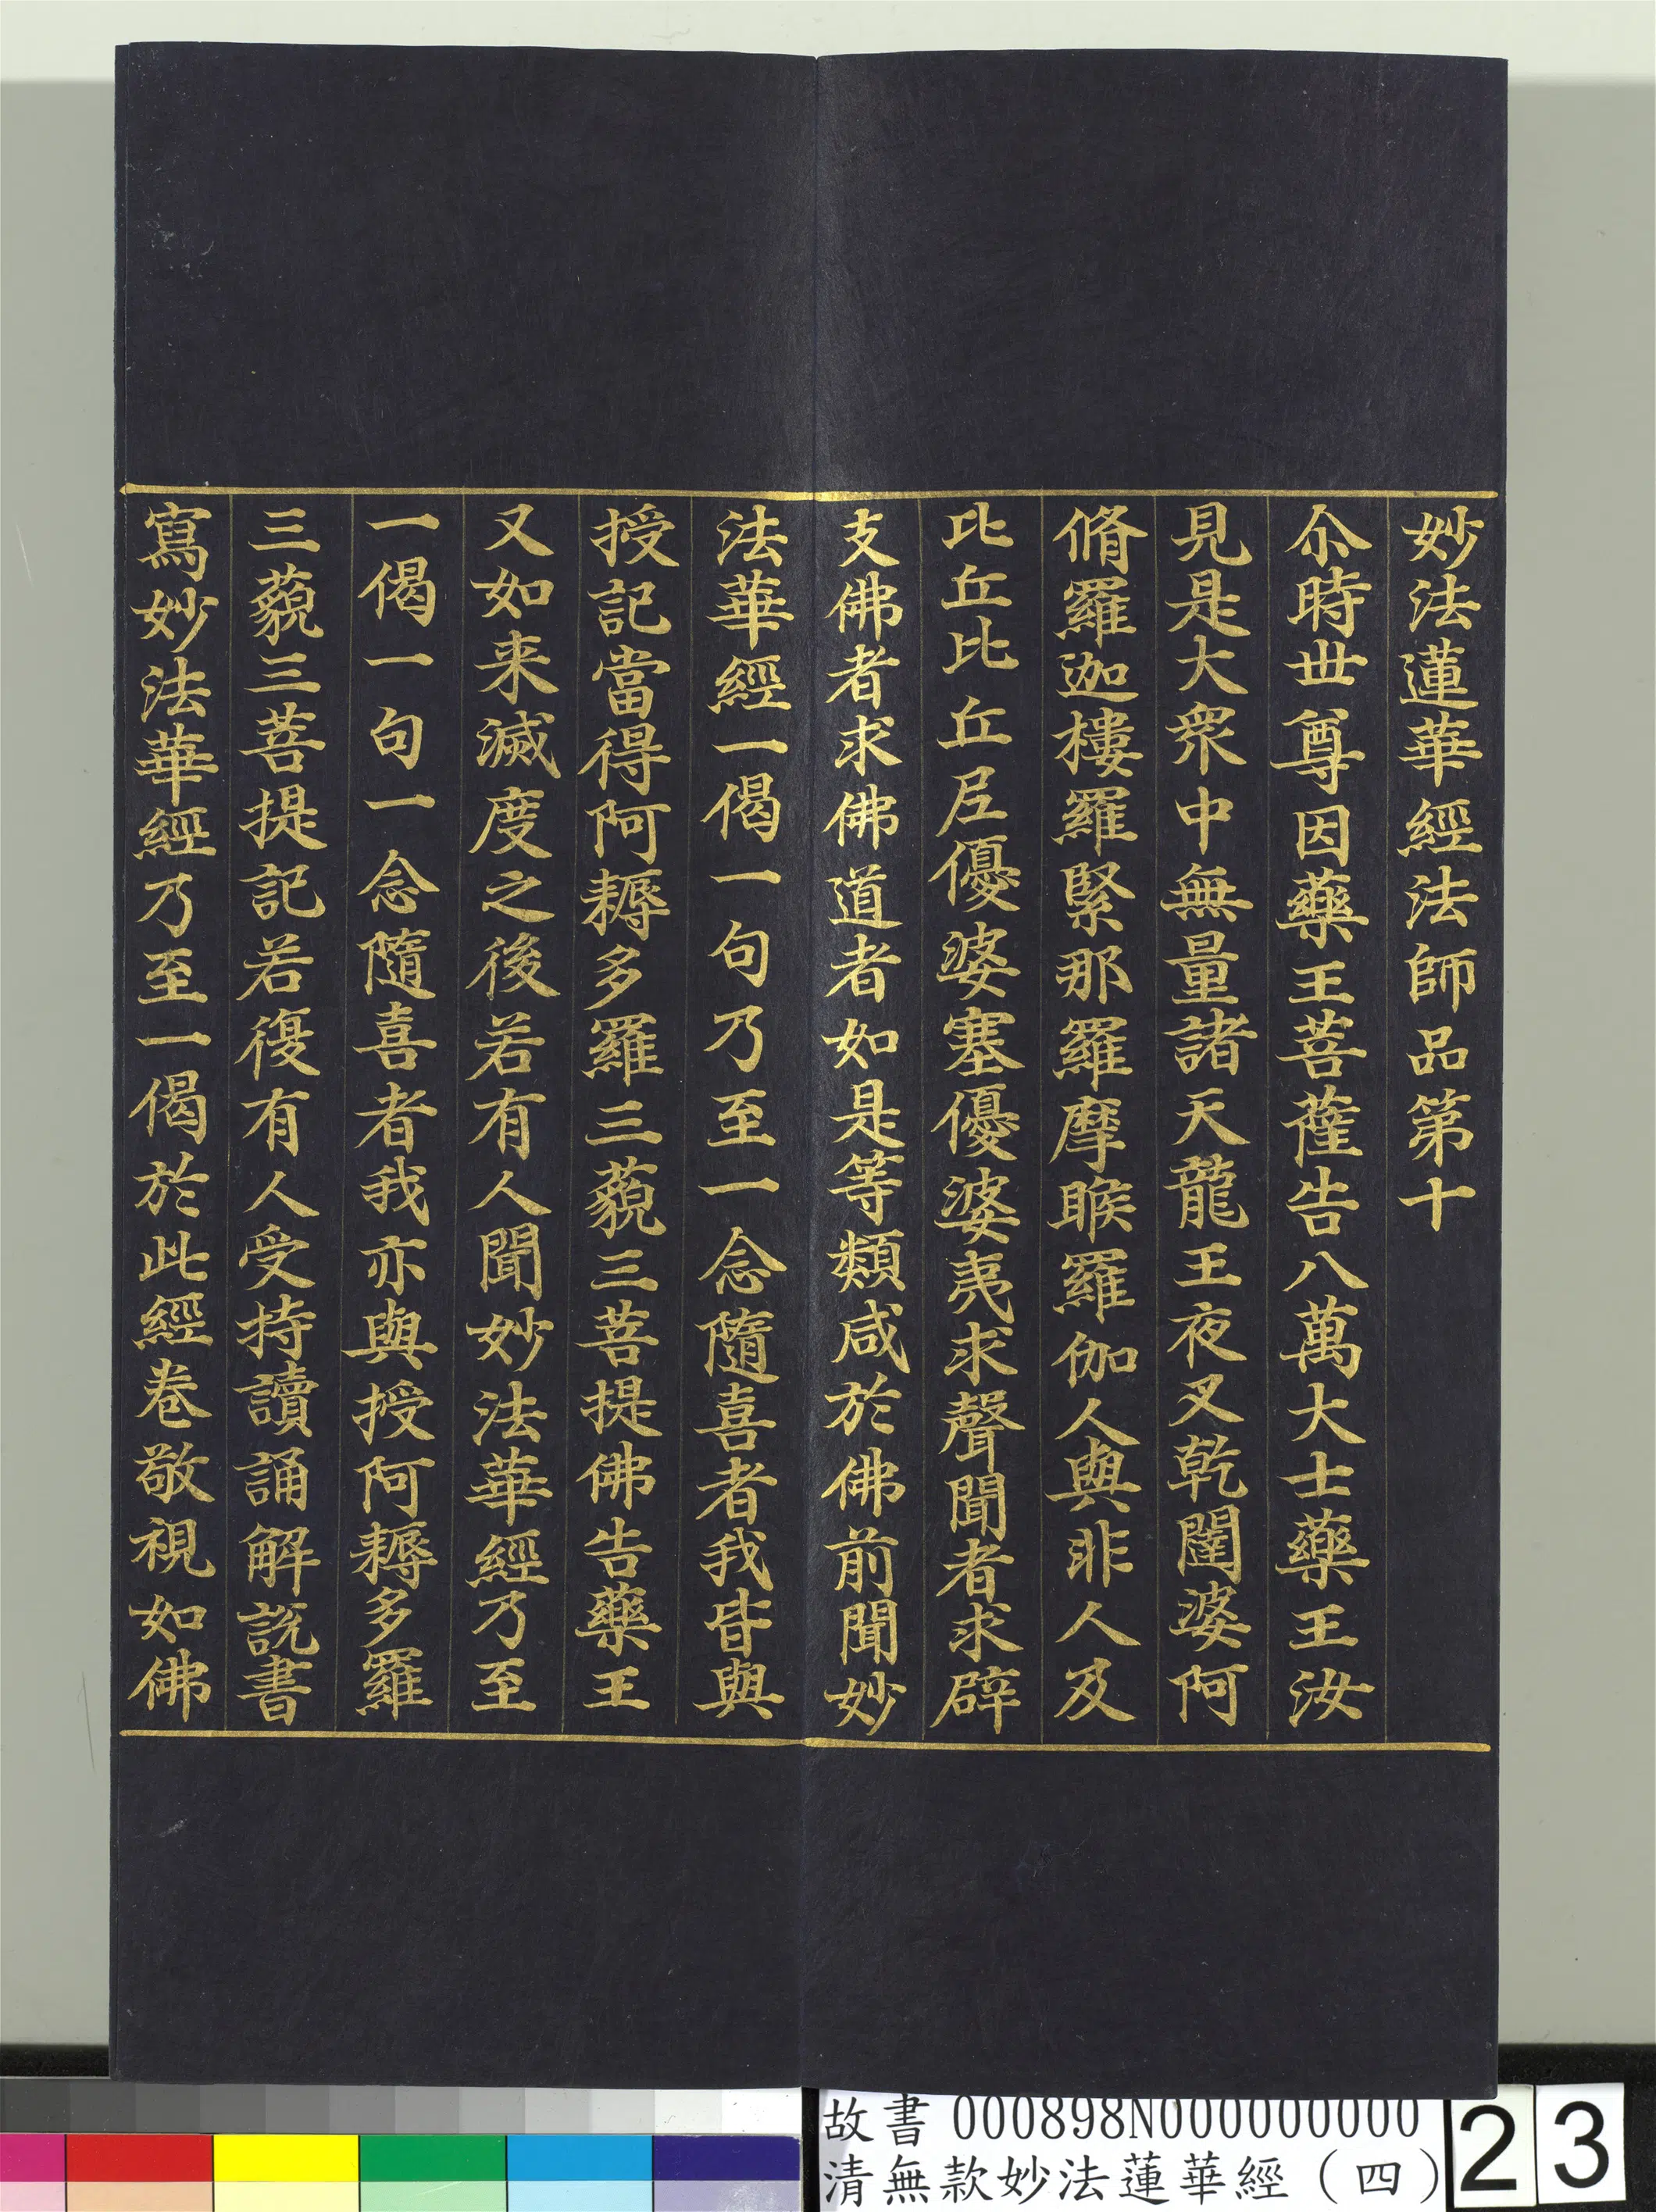 妙法蓮華經法師品第十
尒時世尊因藥王菩薩告八萬大士藥王汝
見是大衆中無量諸天龍王夜叉乾闥婆阿
脩羅迦樓羅緊那羅羅摩睺羅伽人與非人及
比丘比丘尼優婆塞優婆夷求聲聞者求辟
支佛者求佛道者如是等類咸於佛前聞妙
法華經一偈一句乃至一念隨喜者我皆與
授記當得阿耨多羅三藐三菩提佛告藥王
又如来滅度之後若有人聞妙法華經乃至
一偈一句一念隨喜者我亦與授阿耨多羅
三藐三菩提記若復有人受持讀誦解說書
寫妙法華經乃至一偈於此經卷敬視如佛
故書 000898N000000000
清無款妙法蓮華經（四）
23